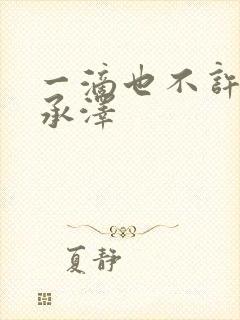 一滴也不許
承澤
夏静